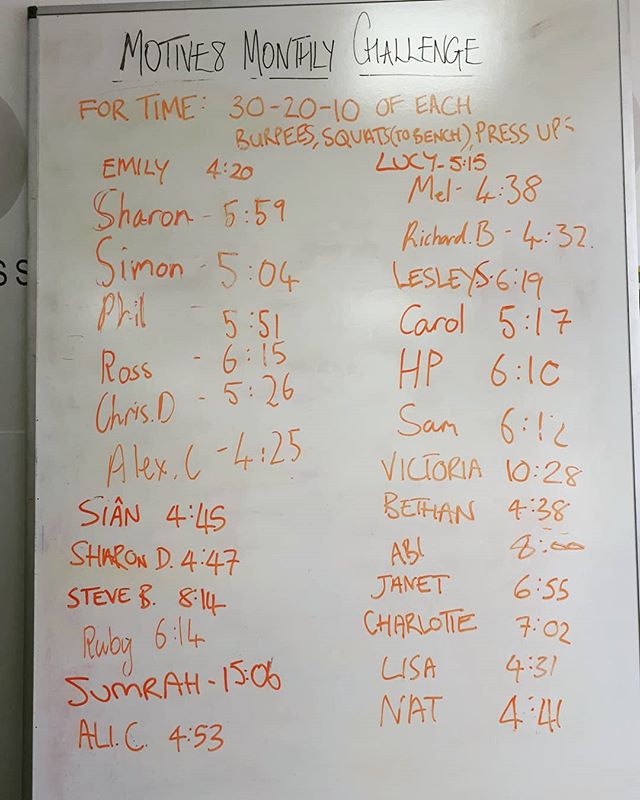 MOTIVE8 MONTHLY CHALLENGE
FOR TIME: 30-20-10 OF EACH
BURPEES, SQUATS (TO BENCH), PRESS UPS
EMILY 4:20
Sharon - 5:59
Simon - 5:04
Phil 5:51
Ross - 6:15
Chris.D - 5:26
Alex.C - 4:25
SIÂN 4:45
SHARON D. 4:47
STEVE B. 8:14
Ruby 6:14
SUMRAH - 15:06
ALI.C. 4:53
LUCY - 5:15
Mel - 4:38
Richard.B - 4:32.
LESLEY S 6:19
Carol 5:17
HP 6:10
Sam 6:12
VICTORIA 10:28
BETHAN 4:38
ABI 8:00
JANET 6:55
CHARLOTTE 7:02
LISA 4:31
NAT 4:41
SS